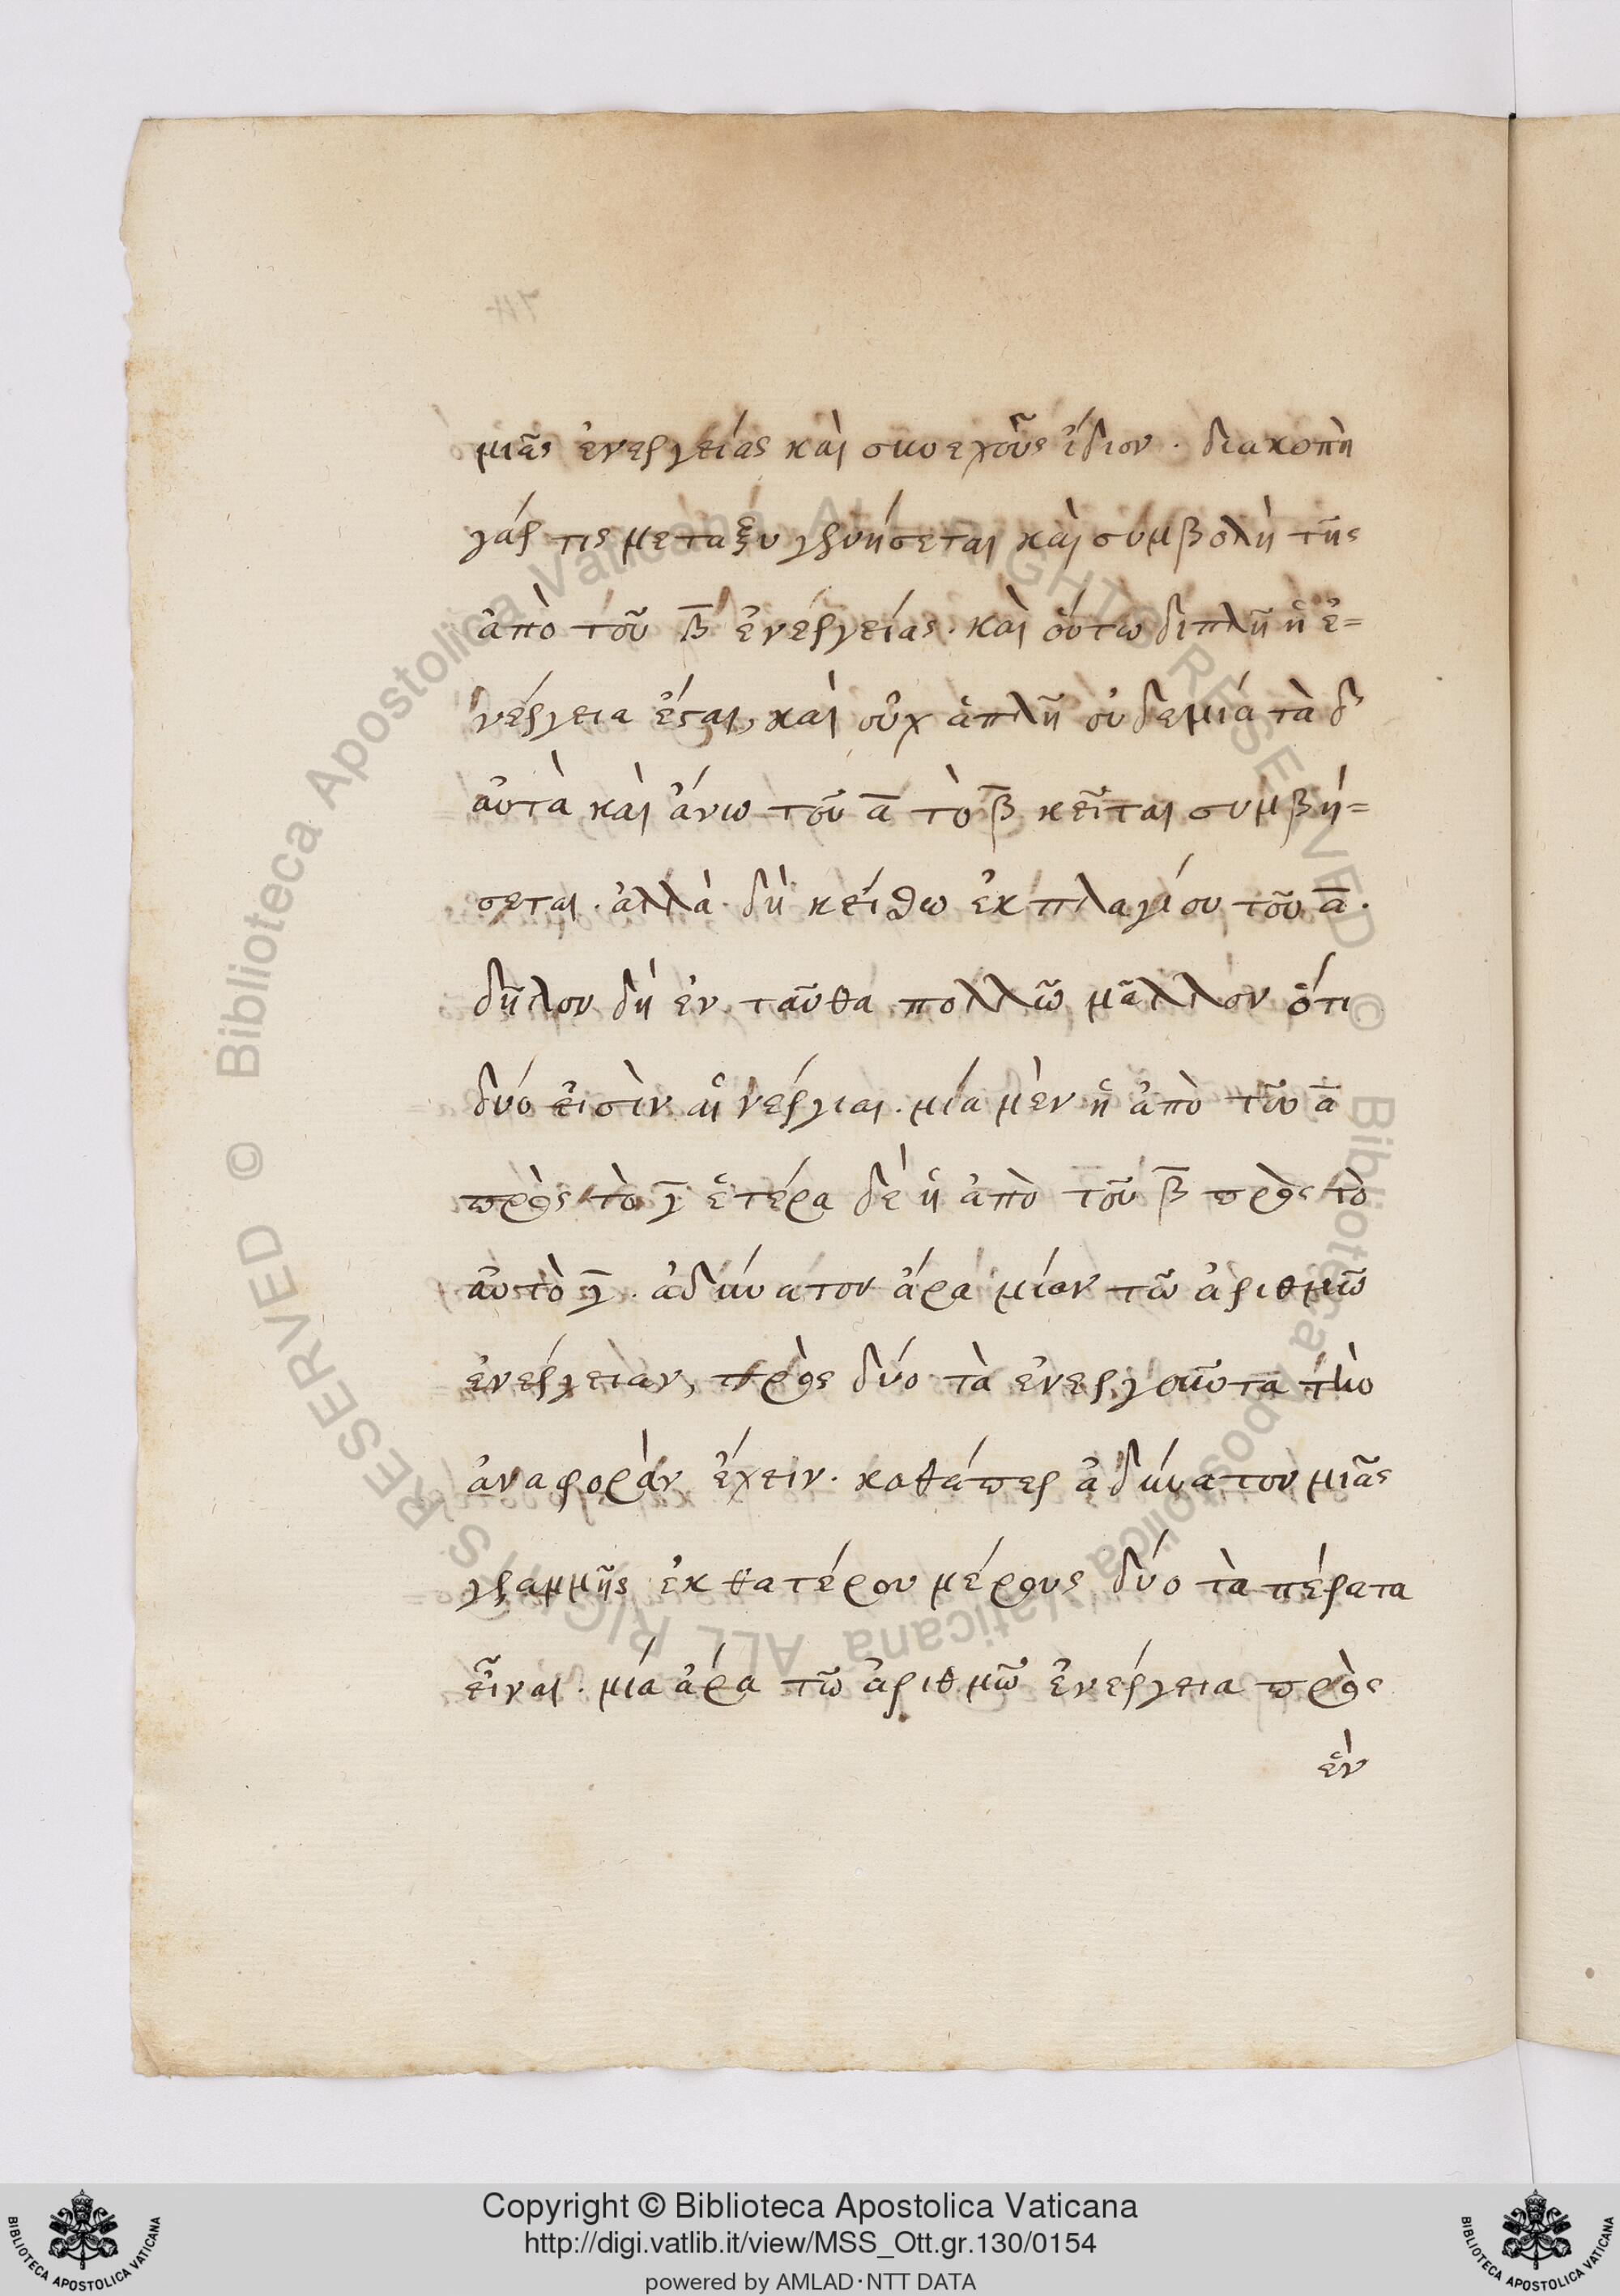 μιᾶς ἐνεργείας καὶ συνεχοῦς ἴδιον · διακοπὴ
γάρ τις μεταξὺ γενήσεται καὶ συμβολὴ τῆς
ἀπὸ τοῦ β̅ ἐνεργείας · καὶ οὕτω διπλῆ ἡ ἐ=
νέργεια ἔσται, καὶ οὐχ ἁπλῆ οὐδε μιά τὰ δ'
αὐτὰ καὶ ἄνω τοῦ α̅ τὸ β̅ κεῖται συμβή=
σεται · ἀλλὰ δὴ κείσθω ἐκ πλαγίου τοῦ α̅ ·
δῆλον δή ἐν ταῦθα πολλῶ μᾶλλον ὅτι
δύο εἰσὶν αἱ νέργιαι · μία μὲν ἡ ἀπὸ τοῦ α̅
πρὸς τὸ γ̅ ἑτέρα δὲ ἡ ἀπὸ τοῦ β̅ πρὸς τὸ
αὐτὸ γ̅ · ἀδύνατον ἄρα μίαν τῶ ἀριθμῶ
ἐνέργειαν, πρὸς δύο τὰ ἐνεργοῦντα τὴν
ἀναφορὰν ἔχειν · καθάπερ ἀδύνατον μιᾶς
γραμμῆς ἐκ θατέρου μέρους δύο τὰ πέρατα
εἶναι · μία ἄρα τῶ ἀριθμῶ ἐνέργεια πρὸς
ἓν
Copyright © Biblioteca Apostolica Vaticana
http://digi.vatlib.it/view/MSS_Ott.gr.130/0154
powered by AMLAD·NTT DATA
BIBLIOTECA APOSTOLICA VATICANA
BIBLIOTECA APOSTOLICA VATICANA
© Biblioteca Apostolica Vaticana ALL RIGHTS RESERVED
© Biblioteca Apostolica Vaticana ALL RIGHTS RESERVED